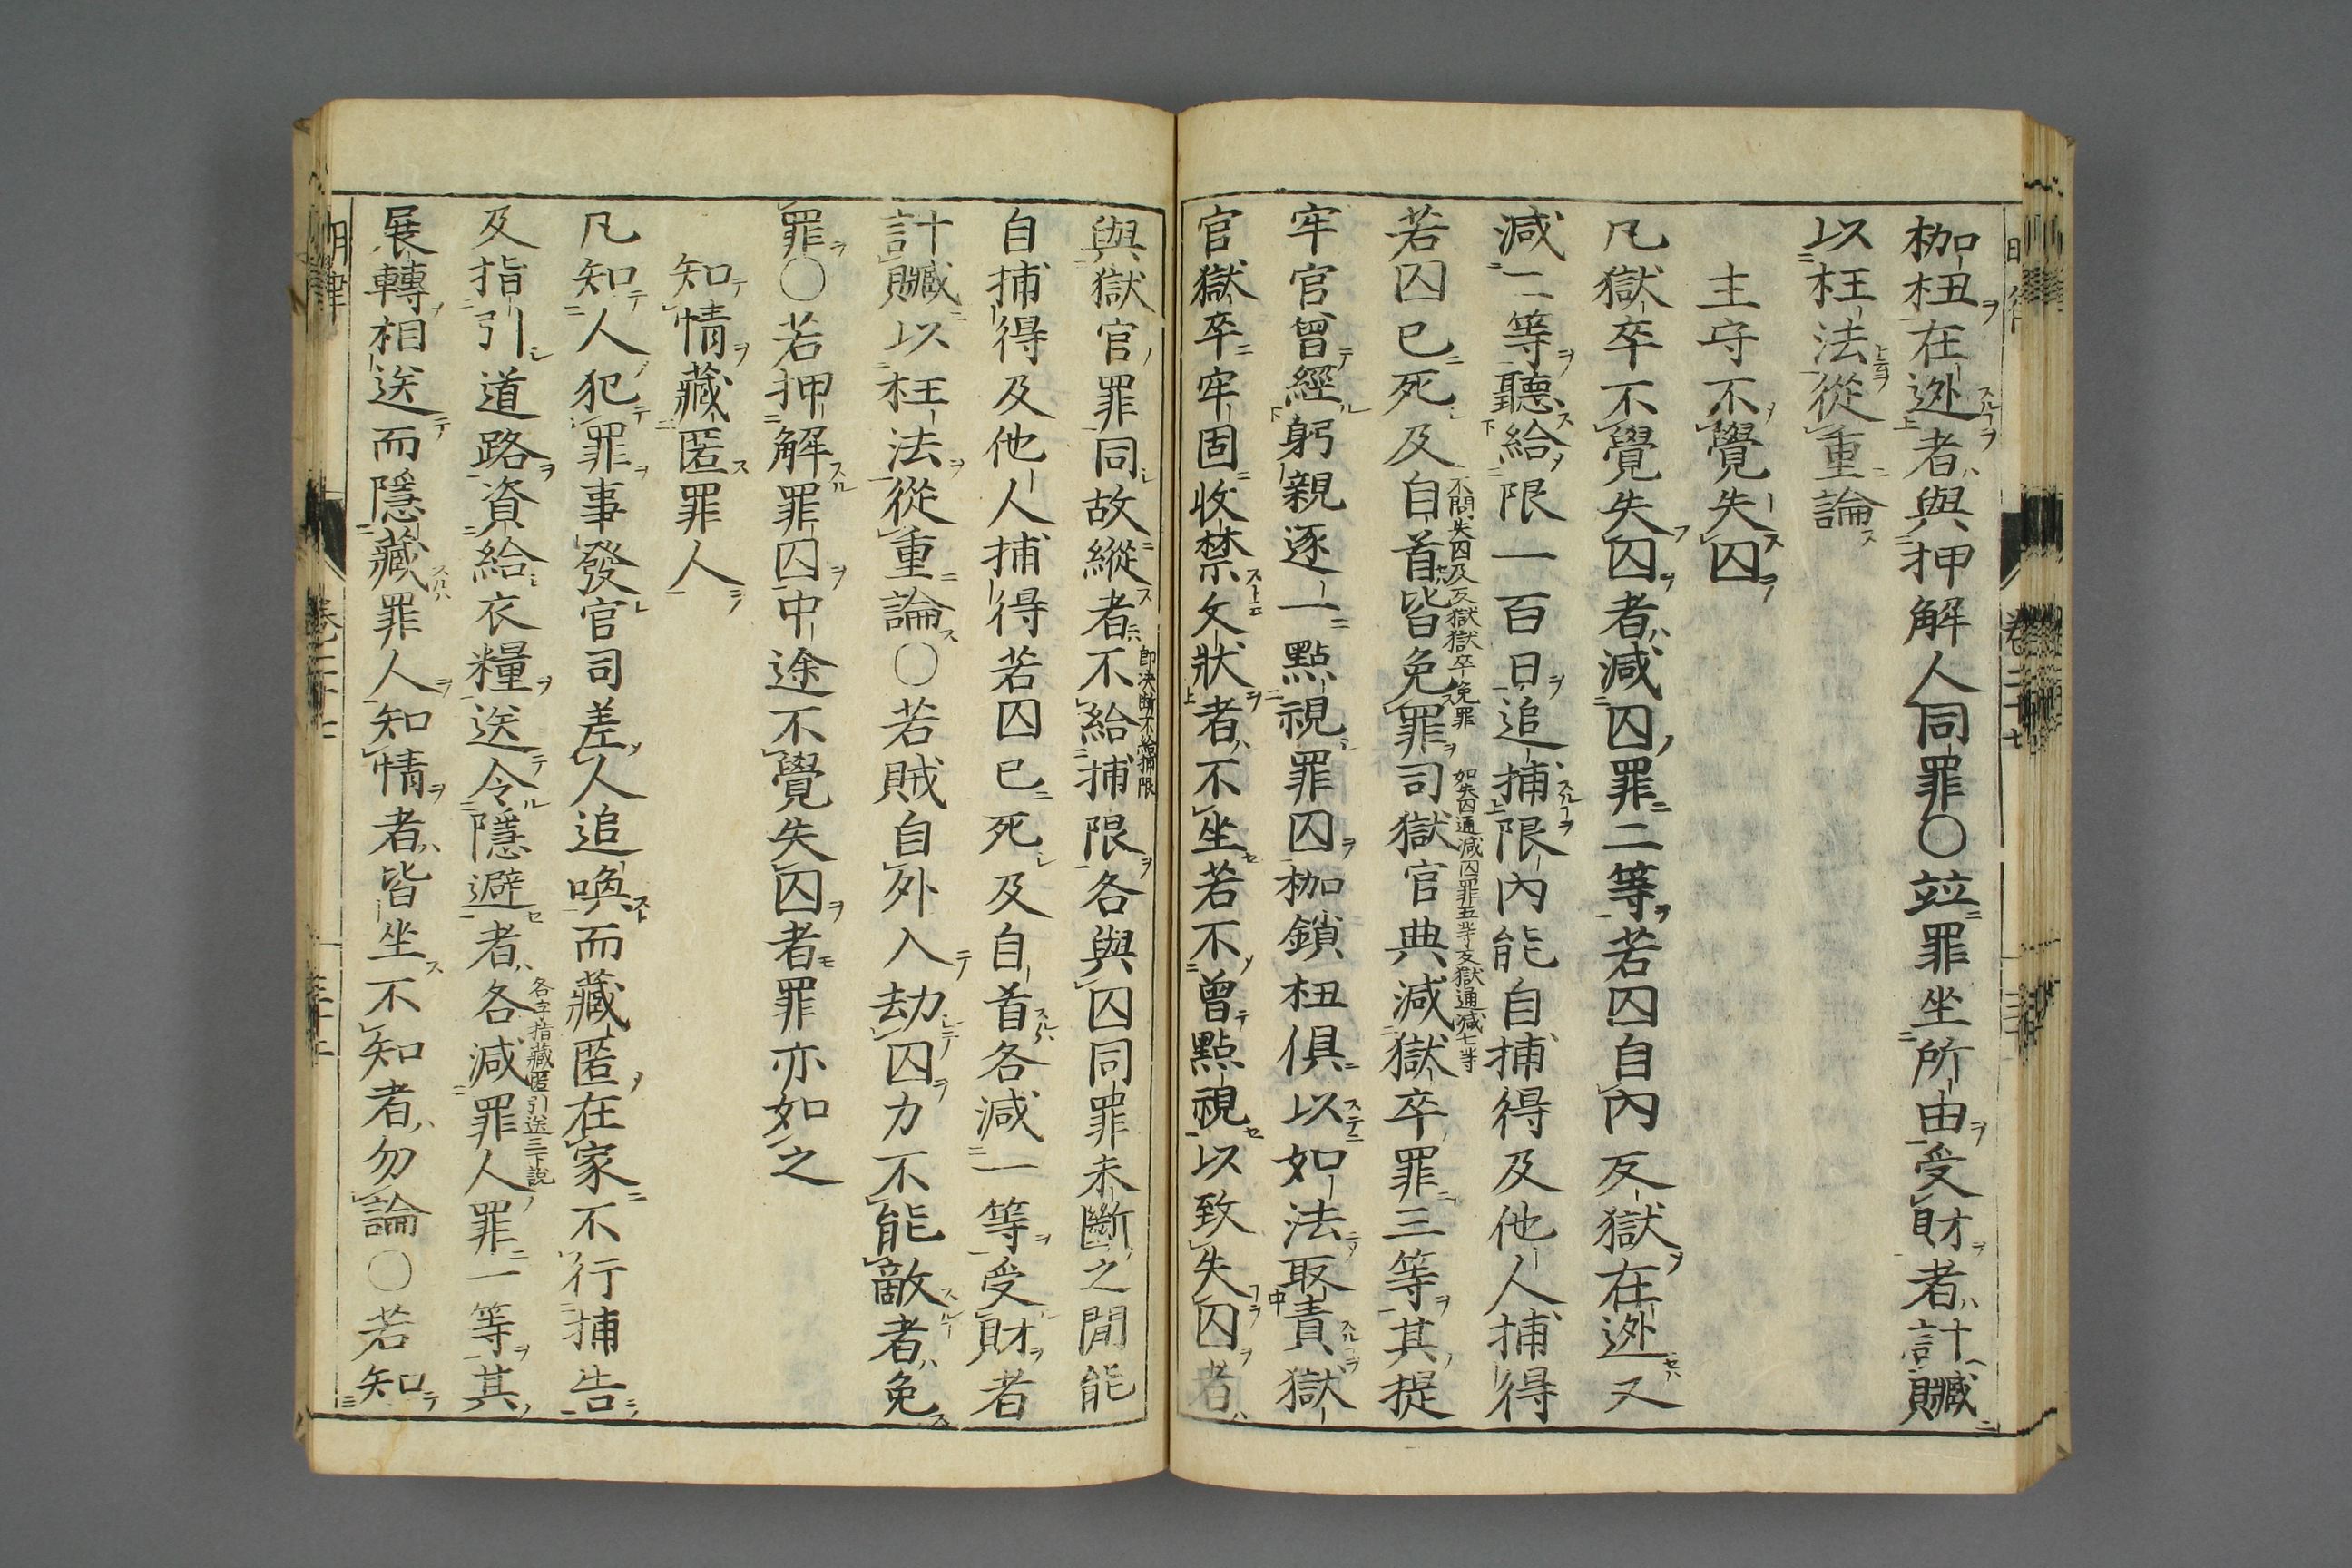 枷杻在逃者與押解人同罪〇竝罪坐所由受財者計贓
以枉法從重論
主守不覺失囚
凡獄卒不覺失囚者減囚罪二等若囚自內反獄在逃又
減二等聽給限一百日追捕限內能自捕得及他人捕得
若囚已死及自首皆免罪司獄官典減獄卒罪三等其提
不問失囚及反獄獄卒免罪
如失囚通減囚罪五等反獄通減七等
牢官曾經躬親逐一點視罪囚枷鎖杻俱以如法取責獄
官獄卒牢固收禁文狀者不坐若不曾點視以致失囚者
與獄官罪同故縱者不給捕限各與囚同罪未斷之間能
即决斷不給捕限
自捕得及他人捕得若囚已死及自首各減一等受財者
計贓以枉法從重論〇若賊自外入劫囚力不能敵者免
罪〇若押解罪囚中途不覺失囚者罪亦如之
知情藏匿罪人
凡知人犯罪事發官司差人追喚而藏匿在家不行捕告
及指引道路資給衣糧送令隱避者各減罪人罪一等其
各字指藏匿引送三下說
展轉相送而隱藏罪人知情者皆坐不知者勿論〇若知